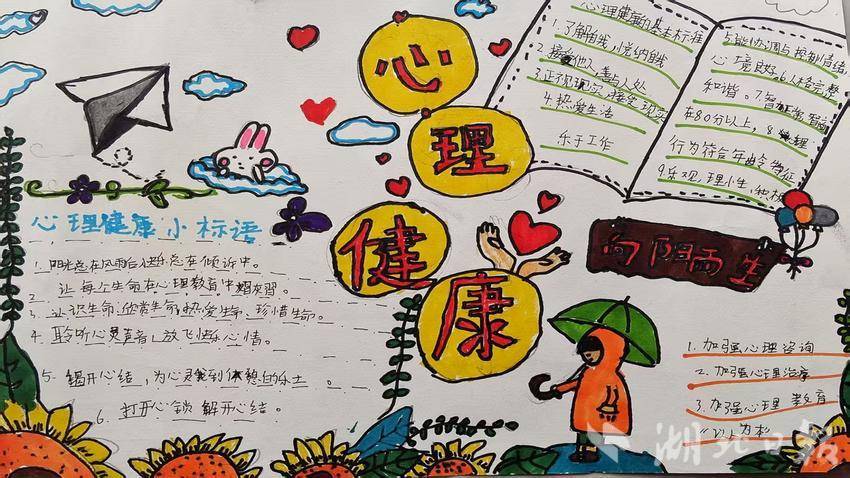 心理健康
心理健康的基本标准
1.了解自我,悦纳自我
2.接受他人,善与人处
3.正视现实,接受现实
4.热爱生活
乐于工作
5.能协调与控制情绪
心境良好.6.人格完整
和谐。7.智力正常,智商
在80分以上,8.心理
行为符合年龄特征
9.乐观,理
心理健康小标语
1.阳光总在风雨后,快乐总在倾诉中。
2.让每个生命在心理教育中
3.认识生命,欣赏生命,热爱生命、珍惜生命。
4.聆听心灵真音,放飞快乐心情。
5.揭开心结,为心灵找到休憩的乐土。
6.打开心锁 解开心结。
向阳而生
1.加强心理咨询
2.加强心理治疗
3.加强心理教育
"以人为本
湖北日报